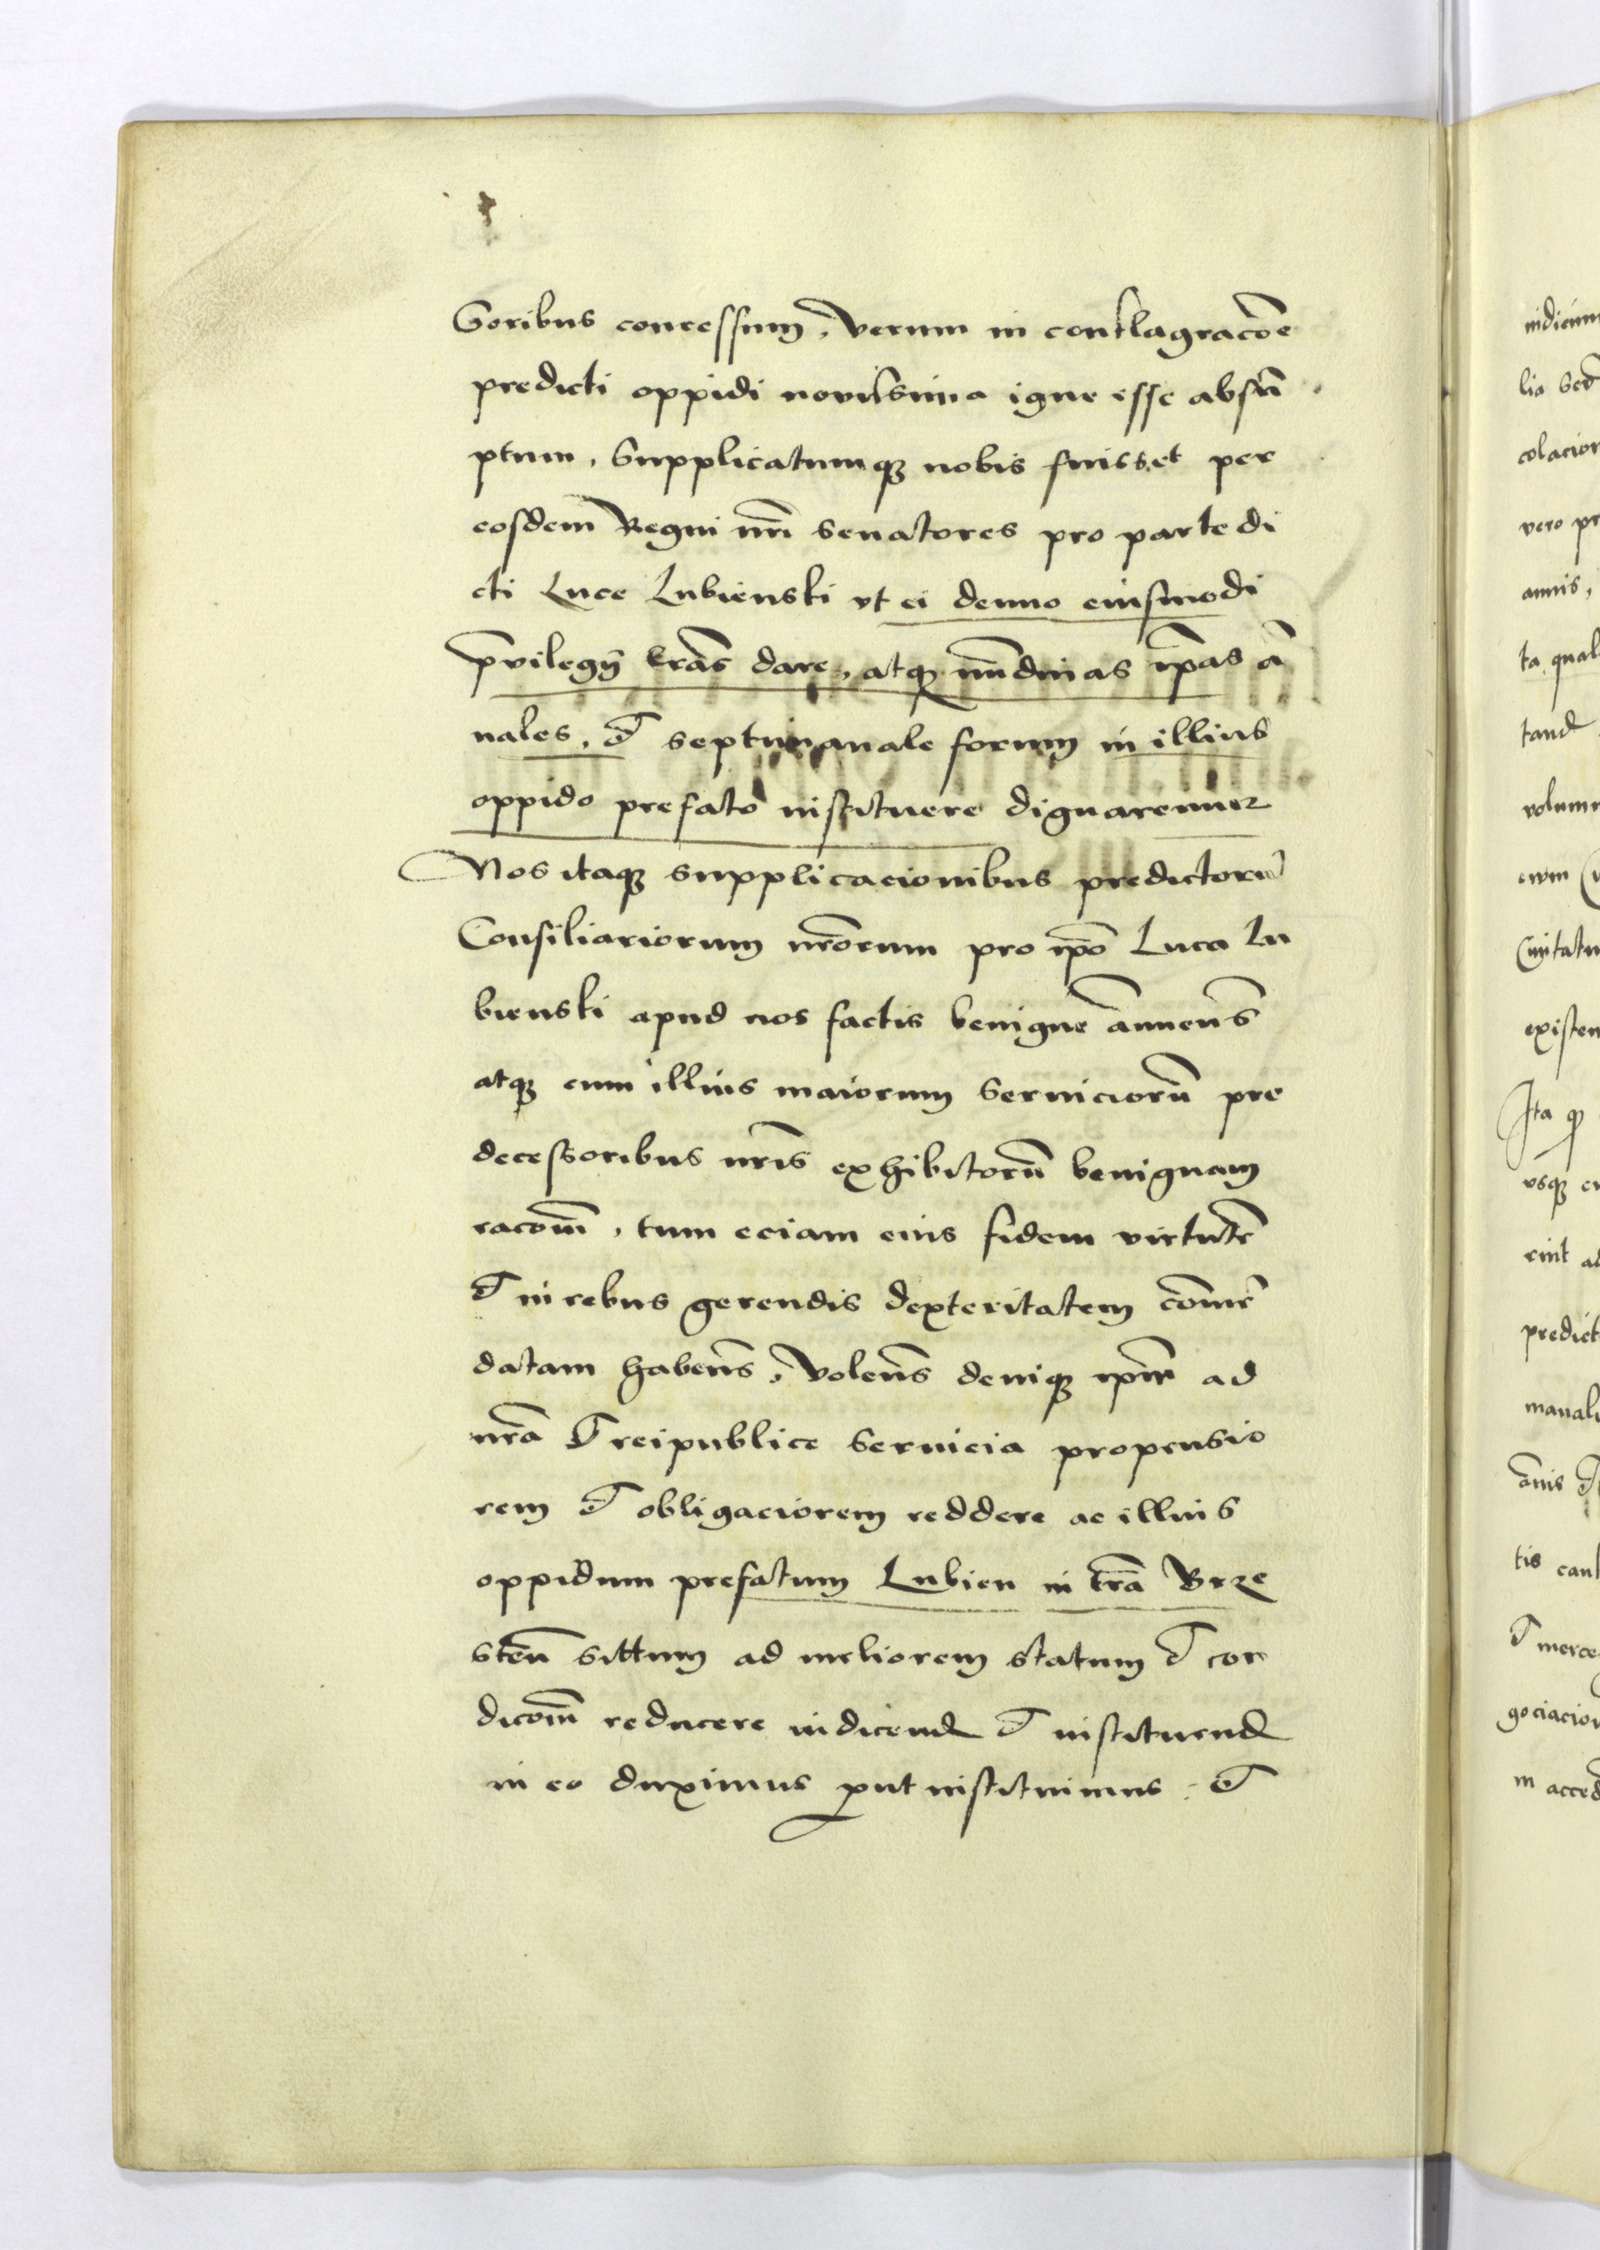 soribus concessum, verum in conflagracõe
predicti oppidi novissima igne esse absũ
ptum, supplicatumq3 nobis fuisset per
eosdem Regni nrĩ senatores pro parte di
cti Luce Lubienski vt ei denuo eiusmodi
pvilegÿ lrãs dare, atq3 nũdinas ip̃as ã
nales, et septimanale forum in illius
oppido prefato instituere dignaremur
Nos itaq3 supplicacionibus predictorũ
Consiliariorum nrõrum pro ip̃o Luca Lu
bienski apud nos factis benigne ãnuens̃
atq3 cum illius maiorum serviciorũ pre
decessoribus nrĩs exhibitorũ benignam
racom̃, tum eciam eius fidem virtutẽ
et in rebus gerendis dexteritatem cõmẽ
datam habens̃, volens̃ deniq3 ip̃m ad
nrã et reipublice servicia propensio
rem et obligaciorem reddere ac illius
oppidum prefatum Lubien in trã Brze
steñ sittum ad meliorem statum et con
dicom̃ reducere indicend et instituend
in eo duximus put instituimus et
indicim
lia
vero
annis,
ta qual
tand
existen
Ita q3
vsq3
rint
predict
tis
et merce